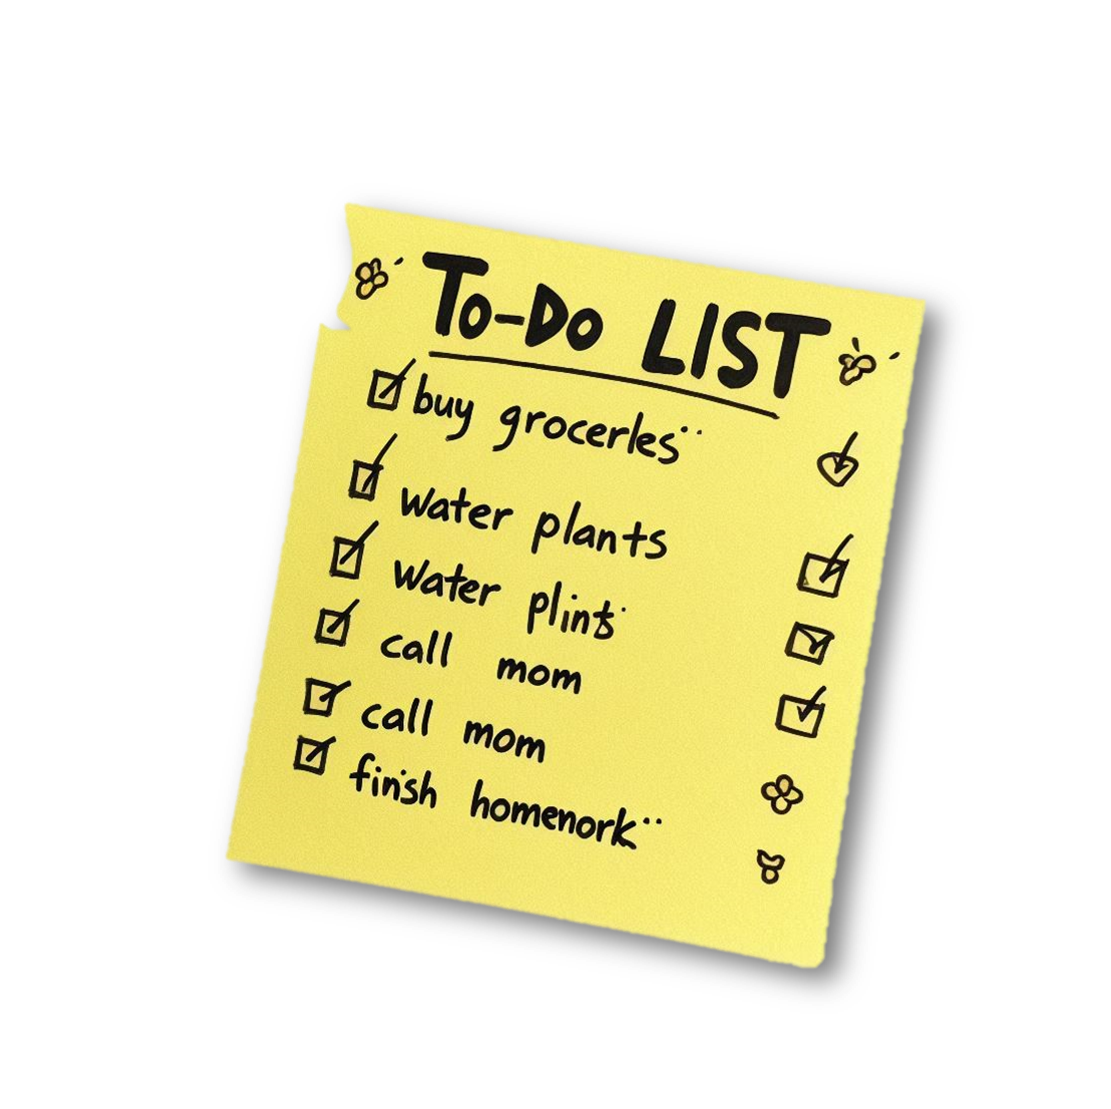 To-Do LIST
buy grocerles
water plants
water plints
call mom
call mom
finish homenork